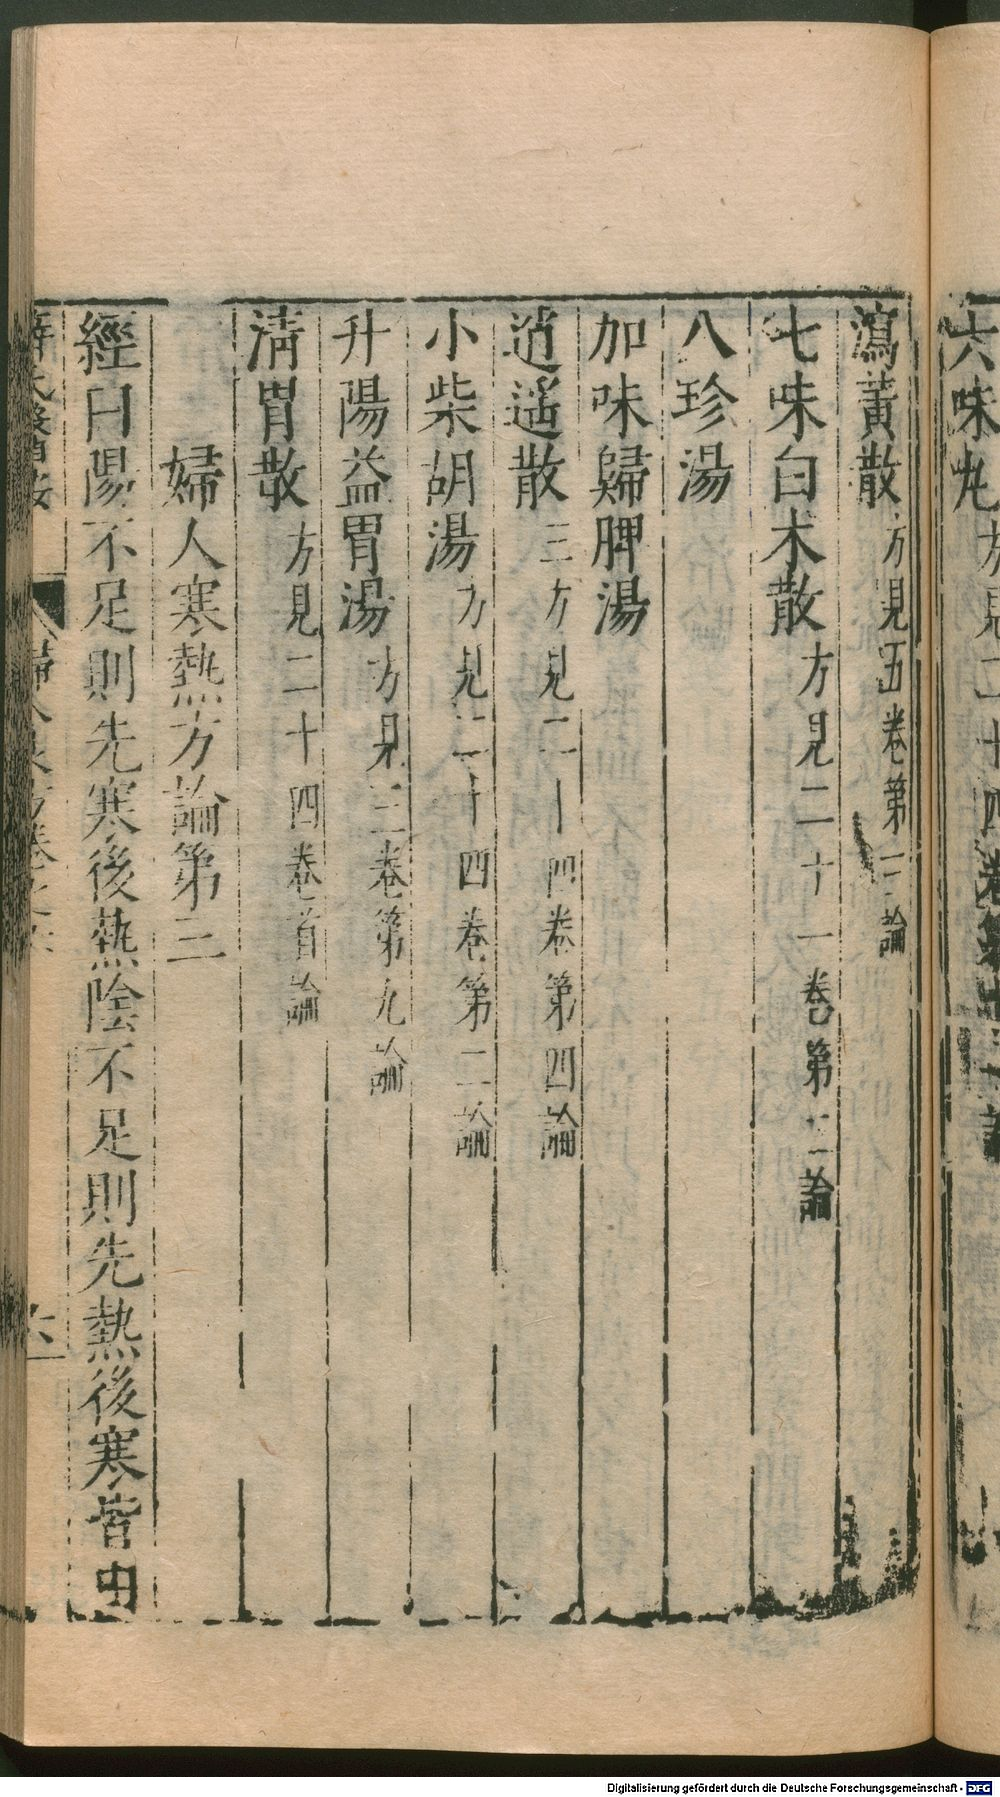 六味丸方見二十四卷第
瀉黃散方見五卷第二論
七味白术散方見二十一卷第二論
八珍湯
加味歸脾湯
逍遙散三方見二十四卷第四論
小柴胡湯方見二十四卷第二論
升陽益胃湯方見三卷第九論
清胃散方見二十四卷首論
婦人寒熱方論第三
經曰陽不足則先寒後熱陰不足則先熱後寒皆由
婦人良方卷之六
Digitalisierung gefördert durch die Deutsche Forschungsgemeinschaft - DFG